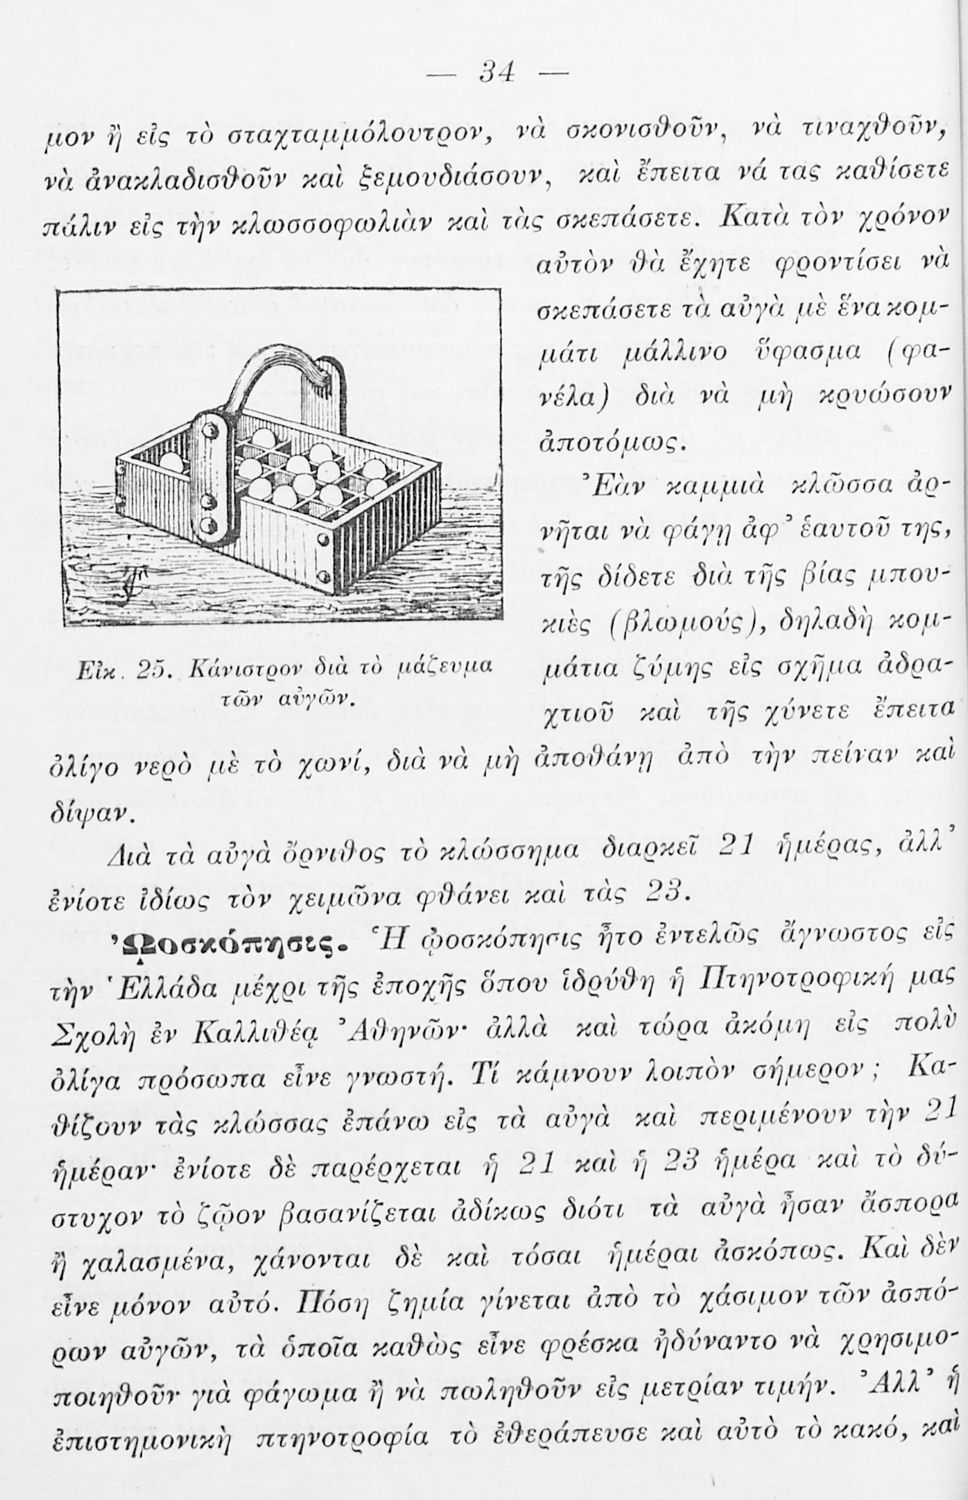 — 34 —
μον ἢ εἰς τὸ σταχταμμόλουτρον, νὰ σκονισθοῦν, νὰ τιναχθοῦν,
νὰ ἀνακλαδισθοῦν καὶ ξεμουδιάσουν, καὶ ἔπειτα νά τας καθίσετε
πάλιν εἰς τὴν κλωσσοφωλιὰν καὶ τὰς σκεπάσετε. Κατὰ τὸν χρόνον
αὐτὸν θὰ ἔχητε φροντίσει νὰ
σκεπάσετε τὰ αὐγὰ μὲ ἕνα κομ-
μάτι μάλλινο ὕφασμα (φα-
νέλα) διὰ νὰ μὴ κρυώσουν
ἀποτόμως.
Ἐὰν καμμιὰ κλῶσσα ἀρ-
νῆται νὰ φάγῃ ἀφ’ ἑαυτοῦ της,
τῆς δίδετε διὰ τῆς βίας μπου-
κιὲς (βλωμούς), δηλαδὴ κομ-
μάτια ζύμης εἰς σχῆμα ἀδρα-
χτιοῦ καὶ τῆς χύνετε ἔπειτα
Εἰκ. 25. Κάνιστρον διὰ τὸ μάζευμα
τῶν αὐγῶν.
ὀλίγο νερὸ μὲ τὸ χωνί, διὰ νὰ μὴ ἀποθάνῃ ἀπὸ τὴν πείναν καὶ
δίψαν.
Διὰ τὰ αὐγὰ ὄρνιθος τὸ κλώσσημα διαρκεῖ 21 ἡμέρας, ἀλλ’
ἐνίοτε ἰδίως τὸν χειμῶνα φθάνει καὶ τὰς 23.
ᾨοσκόπησις. Ἡ ᾠοσκόπησις ἦτο ἐντελῶς ἄγνωστος εἰς
τὴν Ἑλλάδα μέχρι τῆς ἐποχῆς ὅπου ἱδρύθη ἡ Πτηνοτροφική μας
Σχολὴ ἐν Καλλιθέᾳ Ἀθηνῶν· ἀλλὰ καὶ τώρα ἀκόμη εἰς πολὺ
ὀλίγα πρόσωπα εἶνε γνωστή. Τί κάμνουν λοιπὸν σήμερον; Κα-
θίζουν τὰς κλώσσας ἐπάνω εἰς τὰ αὐγὰ καὶ περιμένουν τὴν 21
ἡμέραν· ἐνίοτε δὲ παρέρχεται ἡ 21 καὶ ἡ 23 ἡμέρα καὶ τὸ δύ-
στυχον τὸ ζῷον βασανίζεται ἀδίκως διότι τὰ αὐγὰ ἦσαν ἄσπορα
ἢ χαλασμένα, χάνονται δὲ καὶ τόσαι ἡμέραι ἀσκόπως. Καὶ δὲν
εἶνε μόνον αὐτό. Πόση ζημία γίνεται ἀπὸ τὸ χάσιμον τῶν ἀσπό-
ρων αὐγῶν, τὰ ὁποῖα καθὼς εἶνε φρέσκα ἠδύναντο νὰ χρησιμο-
ποιηθοῦν γιὰ φάγωμα ἢ νὰ πωληθοῦν εἰς μετρίαν τιμήν. Ἀλλ’ ἡ
ἐπιστημονικὴ πτηνοτροφία τὸ ἐθεράπευσε καὶ αὐτὸ τὸ κακό, καὶ